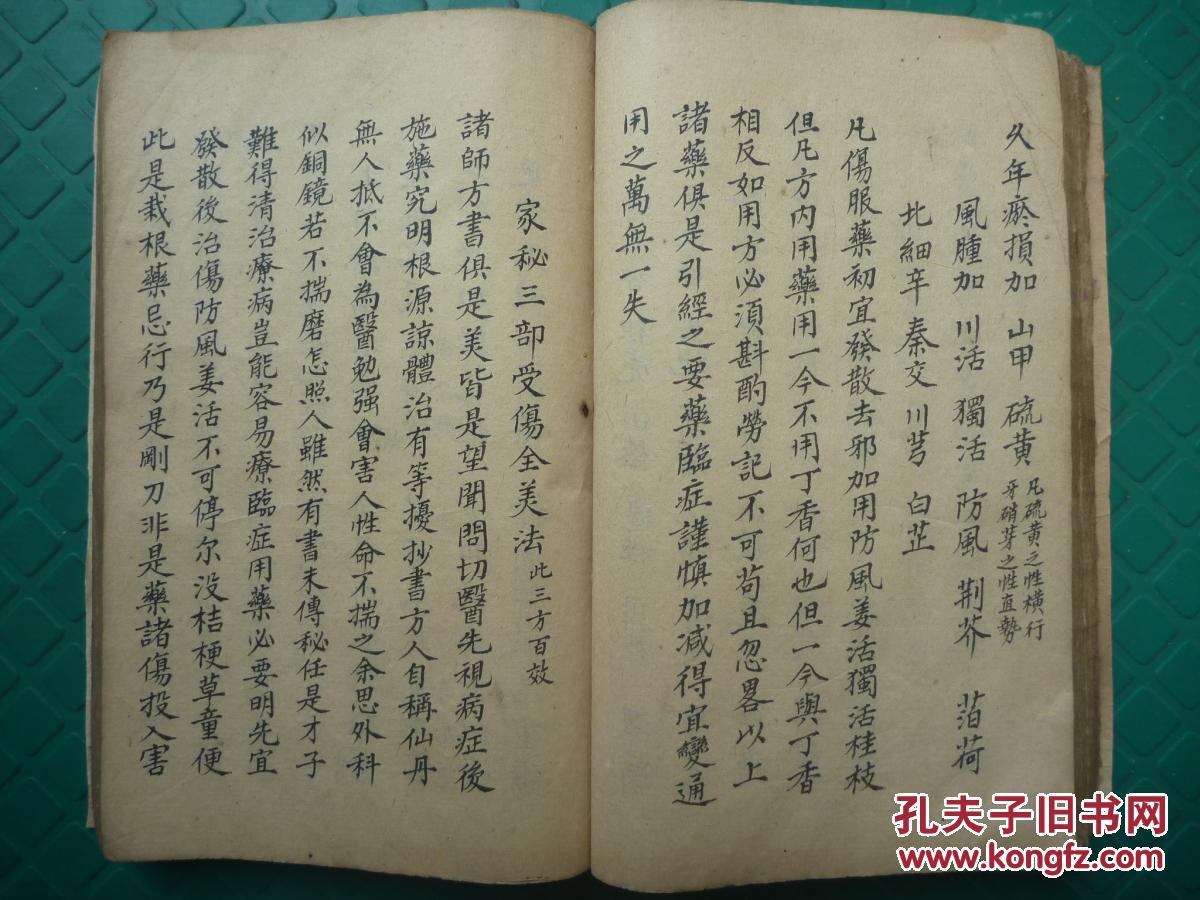 久年瘀損加 山甲 硫黄 凡硫黄之性橫行
牙硝芽之性直勢
風腫加 川活 獨活 防風 荆芥 萡荷
北細辛 秦交 川芎 白芷
凡傷服藥初宜發散去邪加用防風姜活獨活桂枝
但凡方内用藥用一今不用丁香何也但一今與丁香
相反如用方必湏斟酌勞記不可茍且忽畧以上
諸藥俱是引經之要藥臨症謹慎加减得宜變通
用之萬無一失
家秘三部受傷全美法 此三方百效
諸師方書俱是美皆是望聞問切醫先視病症後
施藥究明根源諒體治有等擾抄書方人自稱仙丹
無人抵不會為醫勉强會害人性命不揣之余思外科
似銅鏡若不揣磨怎照人雖然有書未傳秘任是才子
難得清治療病豈能容易療臨症用藥必要明先宜
發散後治傷防風姜活不可停尔没桔梗草童便
此是栽根藥忌行乃是剛刀非是藥諸傷投入害
孔夫子旧书网
www.kongfz.com